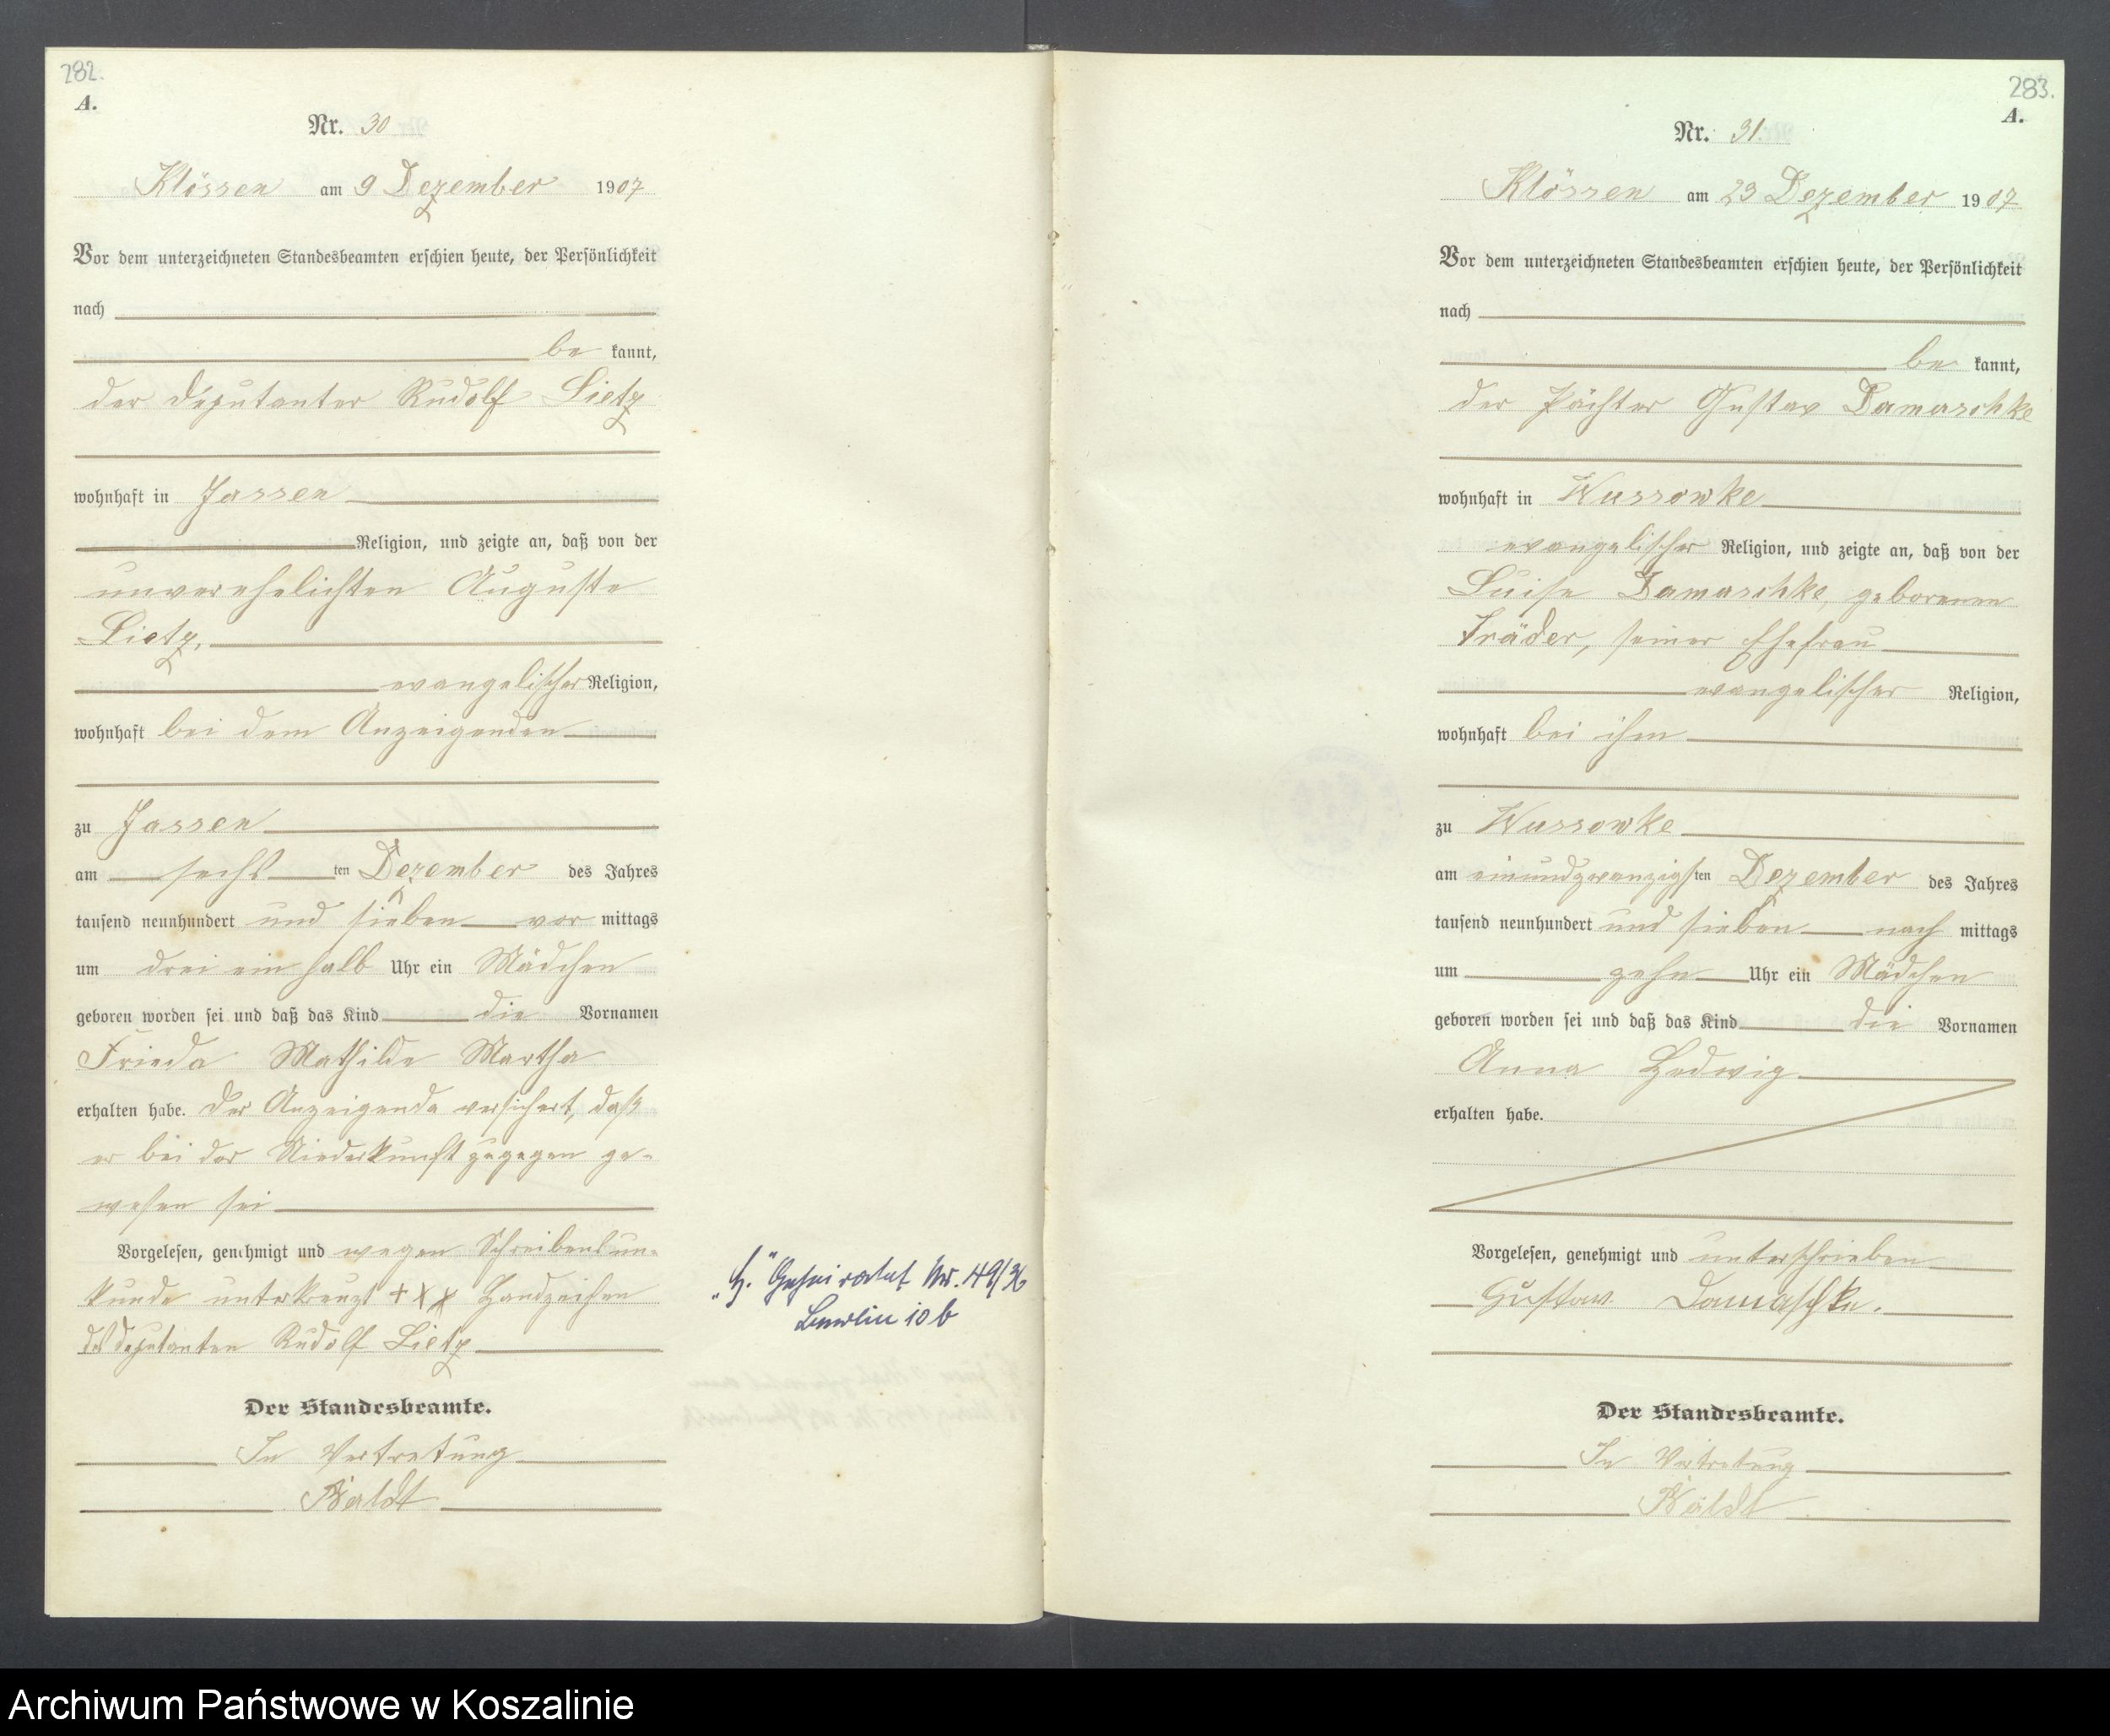 282.
A.
Nr. 30
Klössen am 9 Dezember 1907
Vor dem unterzeichneten Standesbeamten erschien heute, der Persönlichkeit
nach
be kannt,
der Deputanter Rudolf Lietz
wohnhaft in Jassen
Religion, und zeigte an, daß von der
unverehelichten Auguste
Lietz,
evangelischer Religion,
wohnhaft bei dem Anzeigenden
zu Jassen
am sechs ten Dezember des Jahres
tausend neunhundert und sieben vor mittags
um drei ein halb Uhr ein Mädchen
geboren worden sei und daß das Kind die Vornamen
Frieda Mathilde Martha
erhalten habe. Der Anzeigende versichert, daß
er bei der Niederkunft zugegen ge-
wesen sei
Vorgelesen, genehmigt und wegen Schreibensun-
kunde unterkreuzt +++ Handzeichen
des Deputanten Rudolf Lietz
Der Standesbeamte.
In Vertretung
Baldt
„H." Geheiratet Nr. 49/36
Berlin 10b
283.
A.
Nr. 31.
Klössen am 23 Dezember 1907
Vor dem unterzeichneten Standesbeamten erschien heute, der Persönlichkeit
nach
be kannt,
der Pächter Gustav Damaschke
wohnhaft in Wussowke
evangelischer Religion, und zeigte an, daß von der
Luise Damaschke, geborenen
Träder, seiner Ehefrau
evangelischer Religion,
wohnhaft bei ihm
zu Wussowke
am einundzwanzigsten Dezember des Jahres
tausend neunhundert und sieben nach mittags
um zehn Uhr ein Mädchen
geboren worden sei und daß das Kind die Vornamen
Anna Hedwig
erhalten habe.
Vorgelesen, genehmigt und unterschrieben
Gustav Damaschke.
Der Standesbeamte.
In Vertretung
Baldt
Archiwum Państwowe w Koszalinie